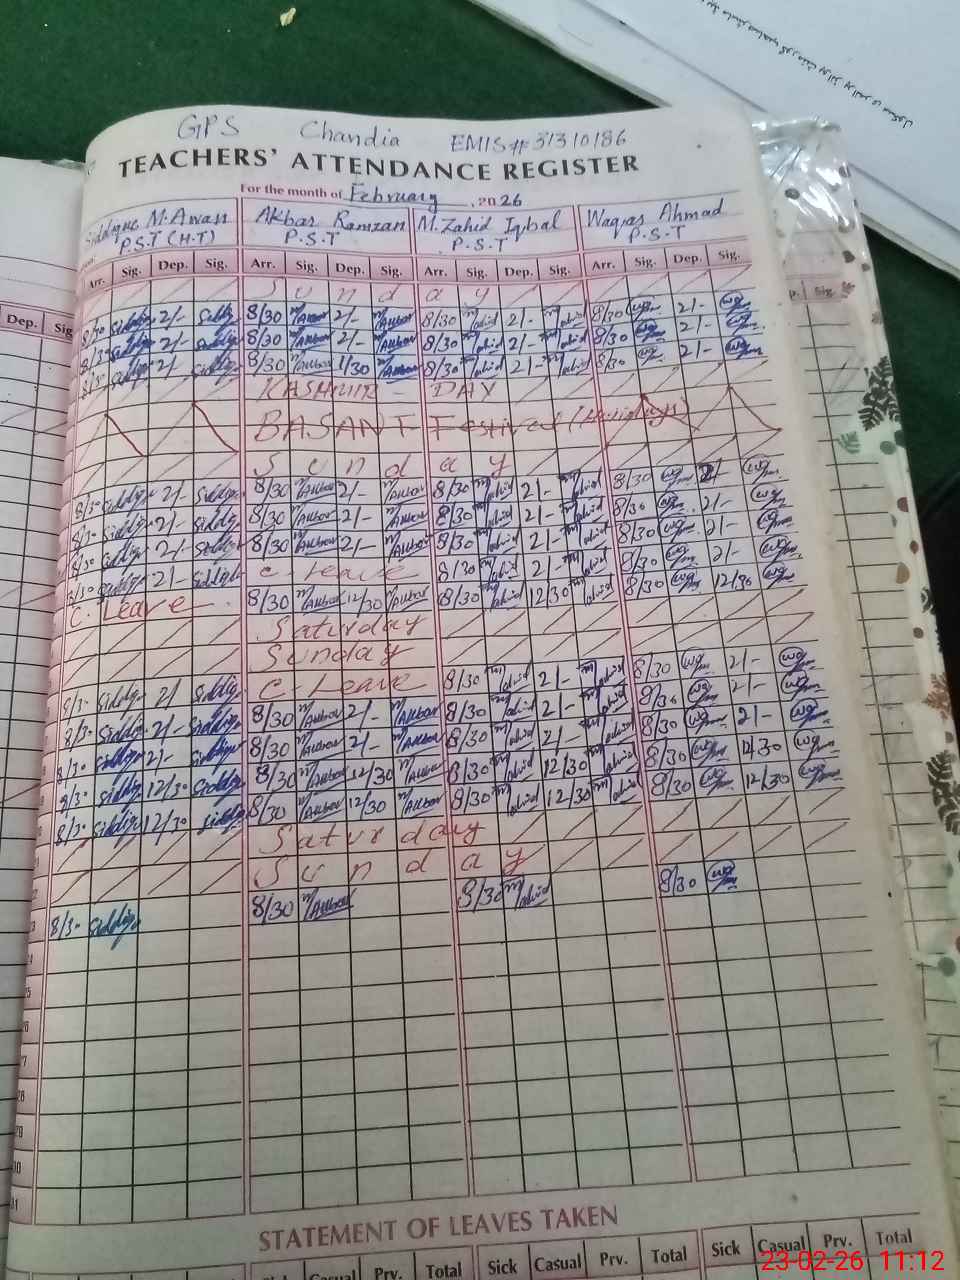 GPS Chandia EMIS # 31310186
TEACHERS' ATTENDANCE REGISTER
For the month of February, 2026
Siddique M. Awan Akbar Ramzan M. Zahid Iqbal Waqas Ahmad
P.S.T (H.T) P.S.T P.S.T P.S.T
Dep. Sig Arr. Sig. Dep. Sig. Arr. Sig. Dep. Sig. Arr. Sig. Dep. Sig. Arr. Sig. Dep. Sig. Sig.
Sunday
8/30 Siddiq 2/- Siddiq 8/30 M Akbar 2/- M Akbar 8/30 M Zahid 2/- M Zahid 8/30 2/-
8/30 Siddiq 2/- Siddiq 8/30 M Akbar 2/- M Akbar 8/30 M Zahid 2/- M Zahid 8/30 2/-
8/30 Siddiq 2/- Siddiq 8/30 M Akbar 1/30 M Akbar 8/30 M Zahid 2/- M Zahid 8/30 2/-
KASHMIR - DAY
BASANT Festival (Holidays)
Sunday
8/30 Siddiq 2/- Siddiq 8/30 M Akbar 2/- M Akbar 8/30 M Zahid 2/- M Zahid 8/30 2/-
8/30 Siddiq 2/- Siddiq 8/30 M Akbar 2/- M Akbar 8/30 M Zahid 2/- M Zahid 8/30 2/-
8/30 Siddiq 2/- Siddiq 8/30 M Akbar 2/- M Akbar 8/30 M Zahid 2/- M Zahid 8/30 2/-
8/30 Siddiq 2/- Siddiq C-Leave 8/30 M Zahid 2/- M Zahid 8/30 2/-
C. Leave 8/30 M Akbar 12/30 M Akbar 8/30 M Zahid 12/30 M Zahid 8/30 12/30
Saturday
Sunday
8/30 Siddiq 2/- Siddiq C-Leave 8/30 M Zahid 2/- M Zahid 8/30 2/-
8/30 Siddiq 2/- Siddiq 8/30 M Akbar 2/- M Akbar 8/30 M Zahid 2/- M Zahid 8/30 2/-
8/30 Siddiq 2/- Siddiq 8/30 M Akbar 2/- M Akbar 8/30 M Zahid 2/- M Zahid 8/30 2/-
8/30 Siddiq 12/30 Siddiq 8/30 M Akbar 12/30 M Akbar 8/30 M Zahid 12/30 M Zahid 8/30 12/30
8/30 Siddiq 12/30 Siddiq 8/30 M Akbar 12/30 M Akbar 8/30 M Zahid 12/30 M Zahid 8/30 12/30
Saturday
Sunday
8/30 Siddiq 8/30 M Akbar 8/30 M Zahid 8/30
STATEMENT OF LEAVES TAKEN
Casual Prv. Total Sick Casual Prv. Total Sick Casual Prv. Total
23-02-26 11:12